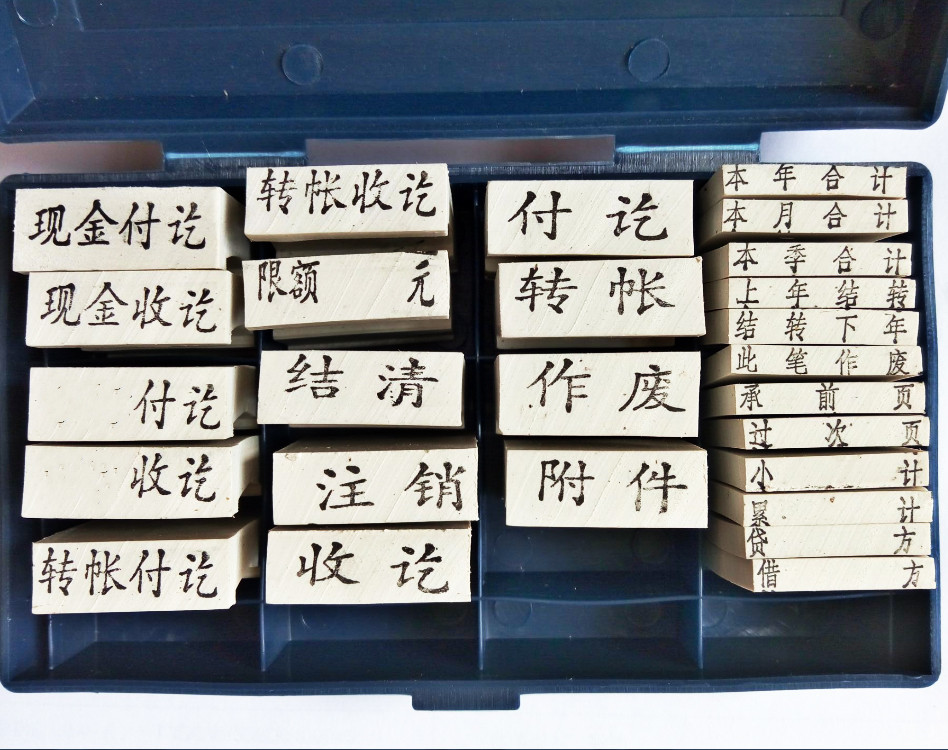 现金付讫
现金收讫
付讫
收讫
转帐付讫
转帐收讫
限额 元
结清
注销
收讫
付讫
转帐
作废
附件
本年合计
本月合计
本季合计
上年结转
结转下年
此笔作废
承前页
过次页
小计
累计
贷方
借方